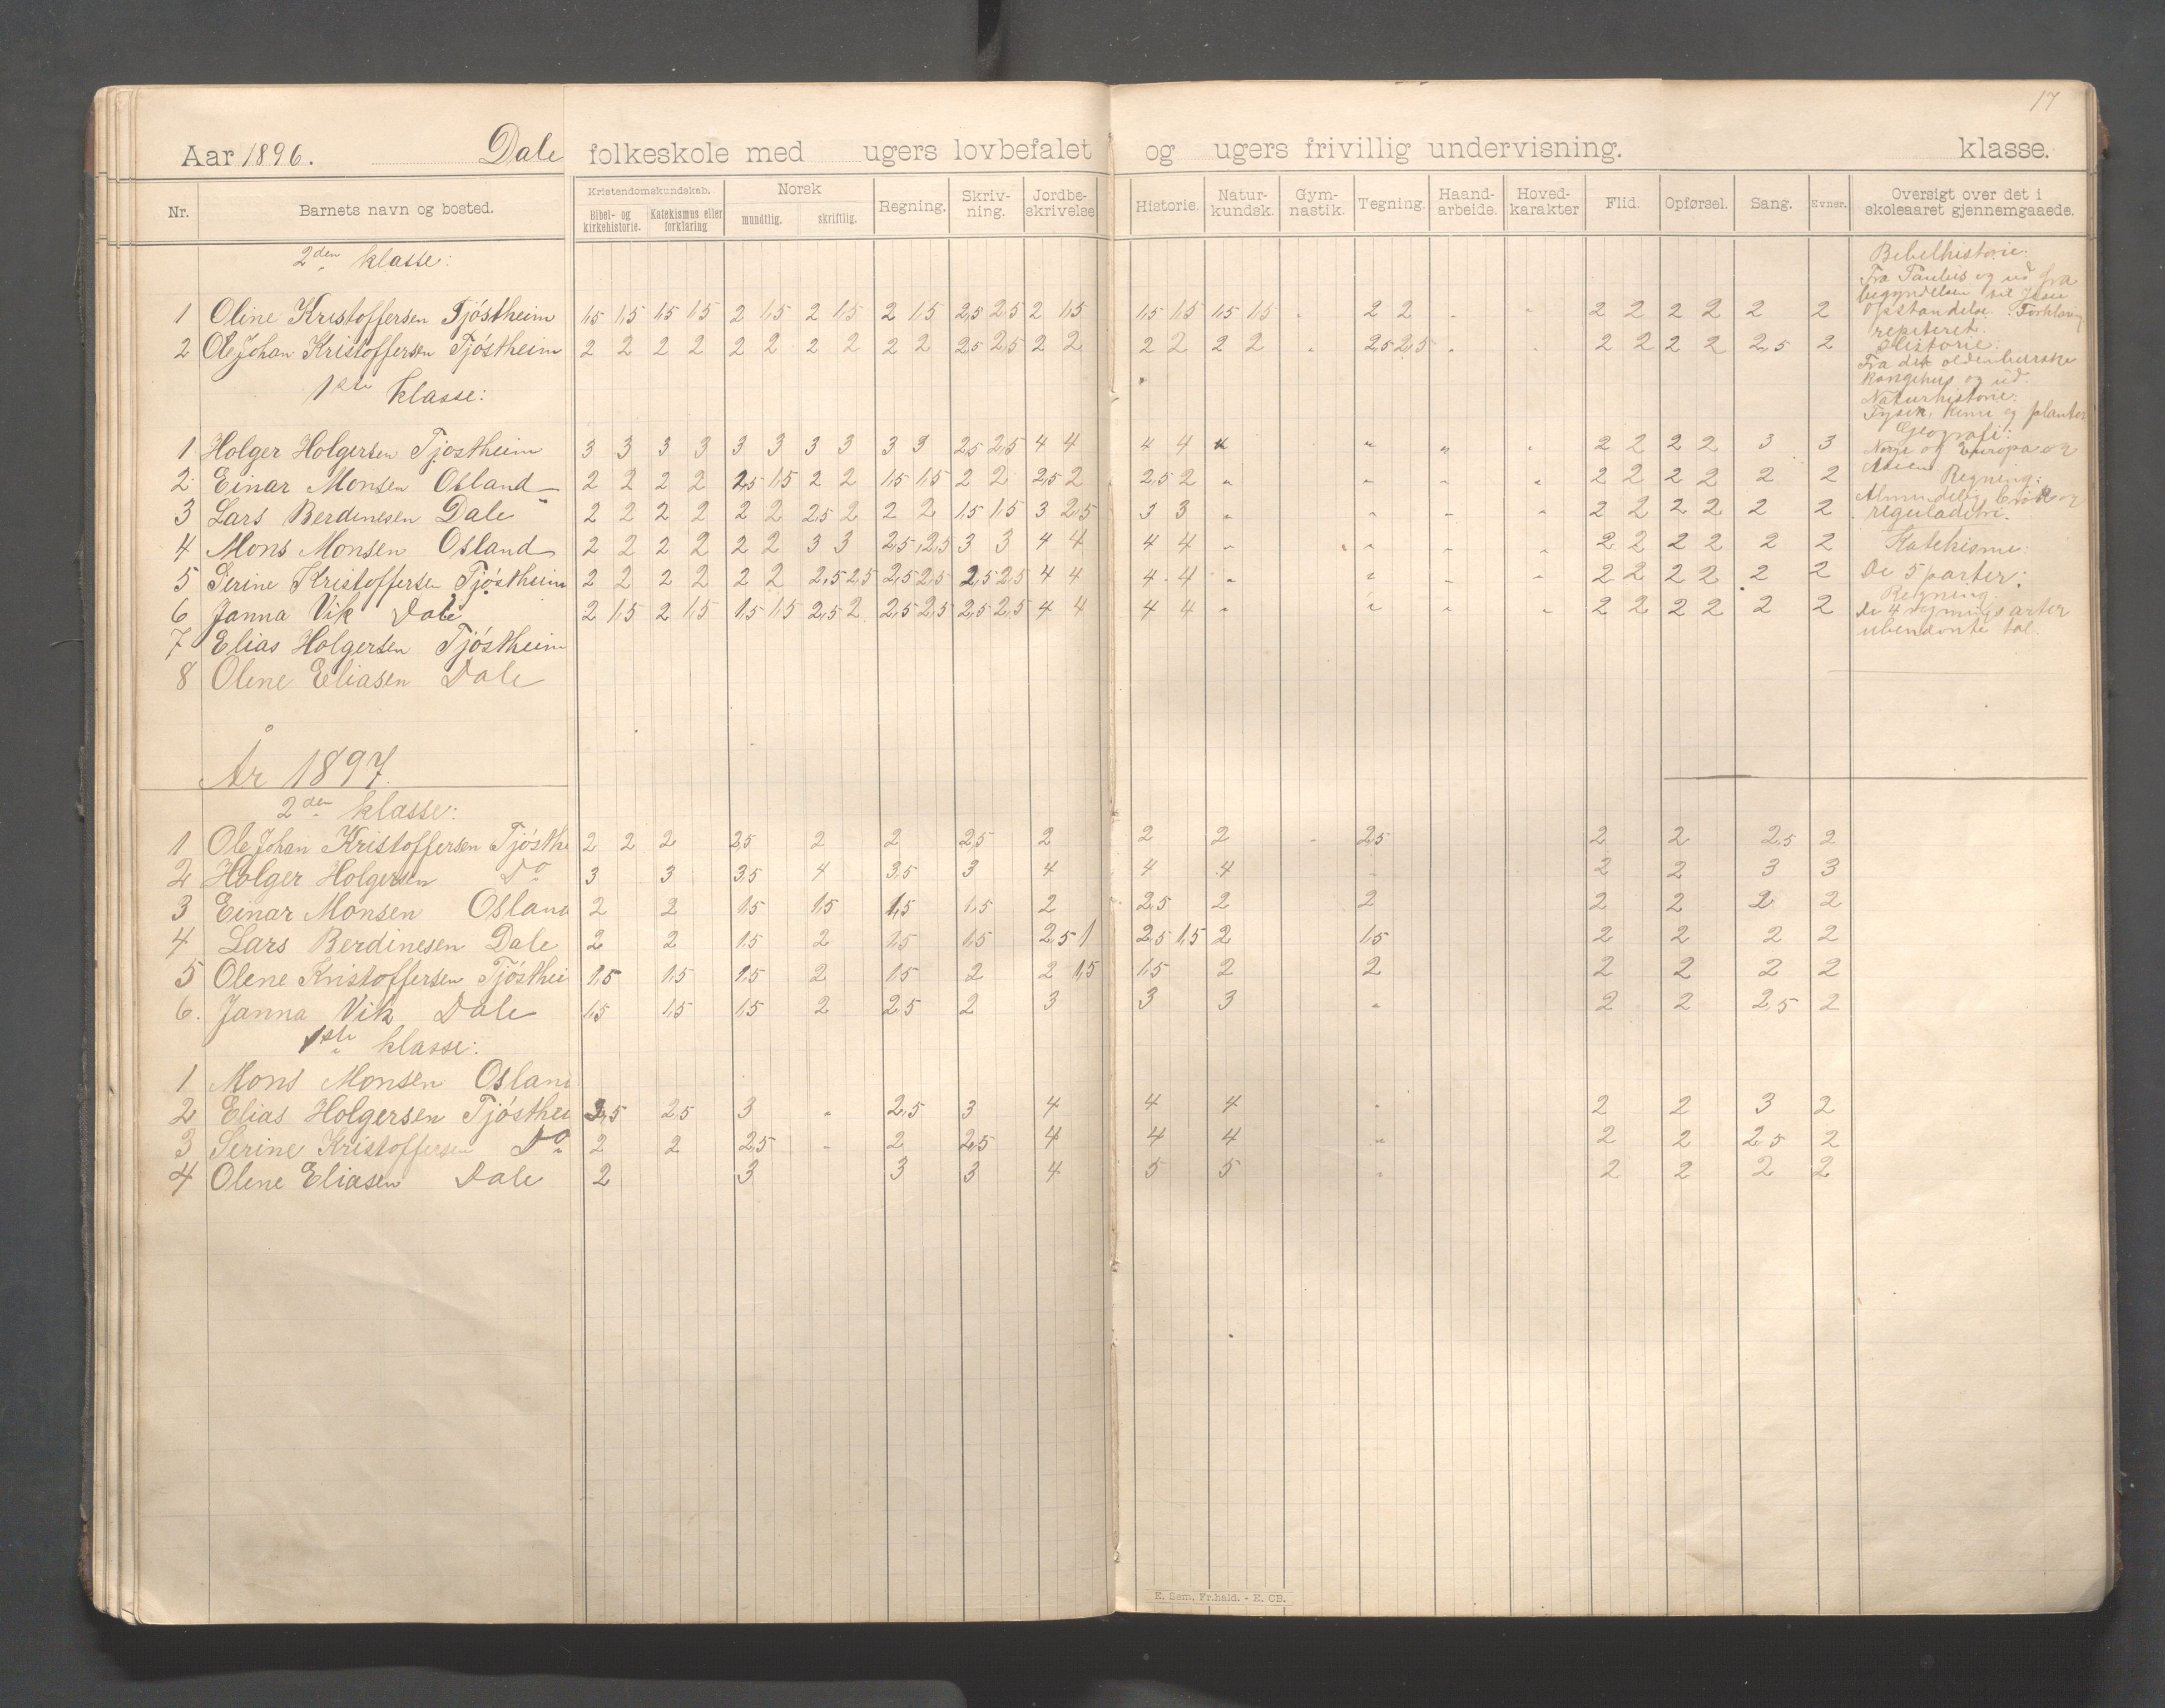 17
Aar 1896. Dale folkeskole med ugers lovbefalet og ugers frivillig undervisning. klasse.
Nr. Barnets navn og bosted. Kristendomskundskab. Bibel- og kirkehistorie. Katekismus eller forklaring Norsk mundtlig. skriftlig. Regning. Skriv-ning. Jordbe-skrivelse Historie. Natur-kundsk. Gym-nastik. Tegning. Haand-arbeide. Hoved-karakter Flid. Opførsel. Sang. Evner. Oversigt over det i skoleaaret gjennemgaaede.
2den klasse:
1 Oline Kristoffersen Tjöstheim 1,5 1,5 1,5 1,5 2 1,5 2 1,5 2 1,5 2,5 2,5 2 1,5 1,5 1,5 1,5 1,5 " 2 2 " " 2 2 2 2 2 2
2 Ole Johan Kristoffersen Tjöstheim 2 2 2 2 2 2 2 2 2 2 2,5 2,5 2 2 2 2 2 2 " 2,5 2,5 " " 2 2 2 2 2,5 2
1ste klasse:
1 Holger Holgersen Tjostheim 3 3 3 3 3 3 3 3 3 3 2,5 2,5 4 4 4 4 " " " " 2 2 2 2 3 3
2 Einar Monsen Osland 2 2 2 2 2,5 1,5 2 2 1,5 1,5 2 2 2,5 2 2,5 2 " " " " 2 2 2 2 2 2
3 Lars Berdinesen Dale 2 2 2 2 2 2 2,5 2 2 2 1,5 1,5 3 2,5 3 3 " " " " 2 2 2 2 2 2
4 Mons Monsen Osland 2 2 2 2 2 2 3 3 2,5 2,5 3 3 4 4 4 4 " " " " 2 2 2 2 2 2
5 Serine Kristoffersen Tjöstheim 2 2 2 2 2 2 2,5 2,5 2,5 2,5 2,5 2,5 4 4 4 4 " " " " 2 2 2 2 2 2
6 Janna Vik Dale 2 1,5 2 1,5 1,5 1,5 2,5 2 2,5 2,5 2,5 2,5 4 4 4 4 " " " " 2 2 2 2 2 2
7 Elias Holgersen Tjöstheim
8 Olene Eliasen Dale
Bibelhistorie:
Fra Paulus og ud fra
begyndelsen til Jesu
Opstandelse. Forklaring
repiteret.
Historie:
Fra det oldenburske
kongehus og ud.
Naturhistorie:
Fysik, kemi og planter
Geografi:
Norge og Europa og
Asien
Regning:
Almindelig brök og
reguladetri.
Katekisme:
De 5 parter:
Regning:
de 4 regningsarter
ubenævnte tal.
År 1897.
2den klasse:
1 Ole Johan Kristoffersen Tjösthe 2 2 2 2,5 2 2 2,5 2 2 2 " 2,5 2 2 2,5 2
2 Holger Holgersen Do 3 3 3,5 4 3,5 3 4 4 4 " 2 2 3 3
3 Einar Monsen Osland 2 2 1,5 1,5 1,5 1,5 2 2,5 2 2 2 2 2 2
4 Lars Berdinesen Dale 2 2 1,5 2 1,5 1,5 2,5 1 2,5 1,5 2 1,5 2 2 2 2
5 Olene Kristoffersen Tjösthei 1,5 1,5 1,5 2 1,5 2 2 1,5 1,5 2 2 2 2 2 2
6. Janna Vik Dale 1,5 1,5 1,5 2 2,5 2 3 3 3 " 2 2 2,5 2
1ste klasse:
1 Mons Monsen Oslan
2 Elias Holgersen Tjösthei 2,5 2,5 3 " 2,5 3 4 4 4 " 2 2 3 2
3 Serine Kristoffersen Do 2 2 2,5 " 2 2,5 4 4 4 " 2 2 2,5 2
4 Olene Eliasen Dale 2 3 3 3 4 5 5 " 2 2 2 2
E. Sem, Fr.hald. - E. CB.